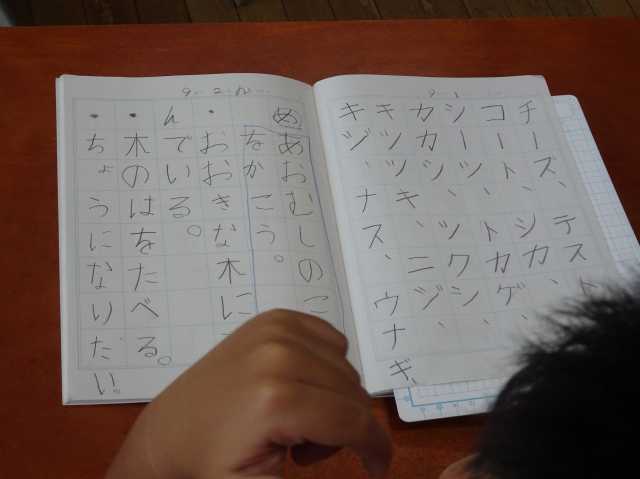 チーズ、テスト
コート、シカ
シーツ、トカゲ、
カカシ、ツクシ、
キツツキ、ニジ、
キジ、ナス、ウナギ、
め あおむしのこ
をかこう。
・おおきな木に
んでいる。
・木のはをたべる。
・ちょうになりだい。